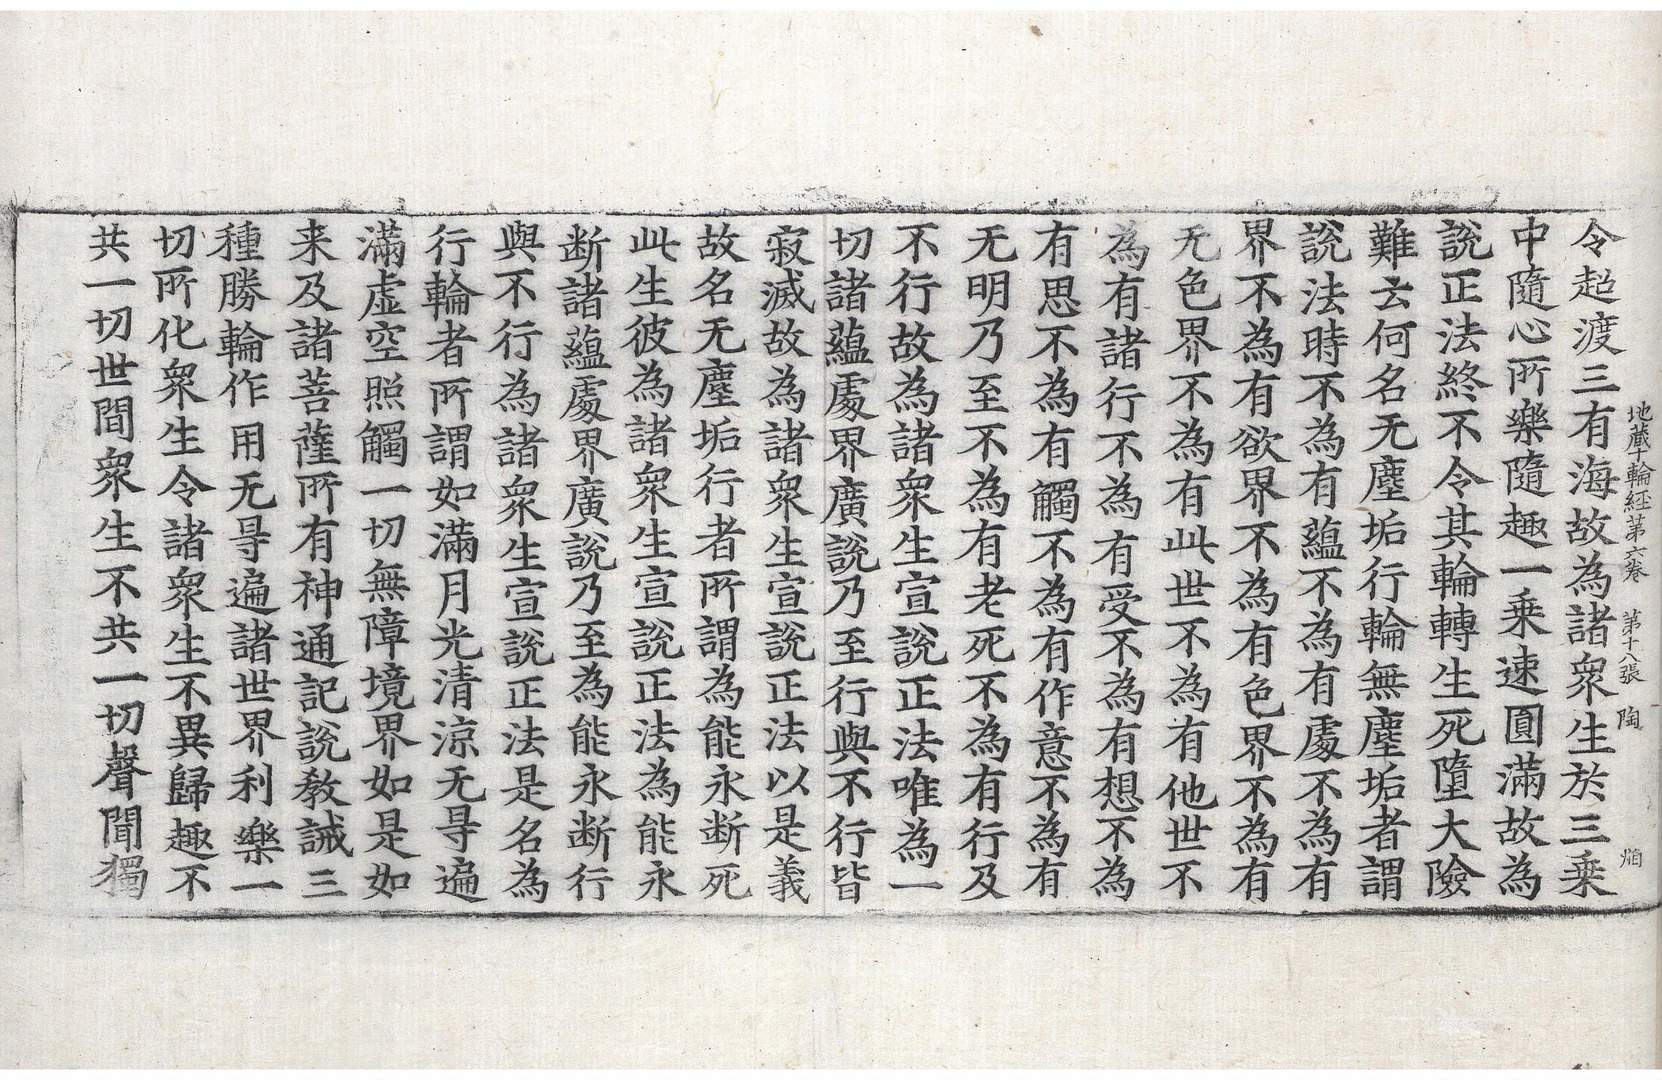 地蔵十輪経第六卷 第十八張 陶
令超渡三有海故為諸衆生於三乗
中隨心所樂隨趣一乗速圓滿故為
說正法終不令其輪轉生死墮大險
難云何名无塵垢行輪無塵垢者謂
說法時不為有蘊不為有處不為有
界不為有欲界不為有色界不為有
无色界不為有此世不為有他世不
為有諸行不為有受不為有想不為
有思不為有觸不為有作意不為有
无明乃至不為有老死不為有行及
不行故為諸衆生宣說正法唯為一
切諸蘊處界廣說乃至行與不行皆
寂滅故為諸衆生宣說正法以是義
故名无塵垢行者所謂為能永断死
此生彼為諸衆生宣說正法為能永
断諸蘊處界廣說乃至為能永断行
與不行為諸衆生宣說正法是名為
行輪者所謂如滿月光清涼无㝵遍
滿虛空照觸一切無障境界如是如
来及諸菩薩所有神通記說教誡三
種勝輪作用无㝵遍諸世界利樂一
切所化衆生令諸衆生不異歸趣不
共一切世間衆生不共一切聲聞獨